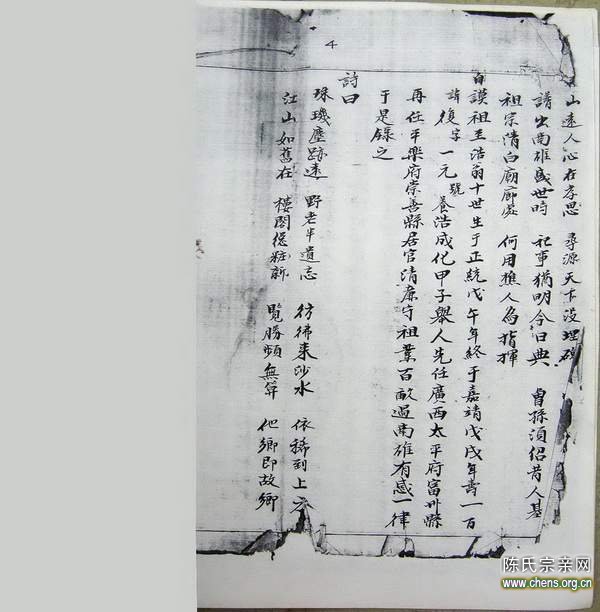 4
山遠人心在孝思 尋源天下沒埋
譜出南雄盛世時 祀事猶明今日典 曾孫須紹昔人基
祖宗清白廟廊處 何用樵人為指揮
自謨祖至浩翁十世生于正統戊午年終于嘉靖戊戌年壽一百
諱復字一元號養浩成化甲子舉人先任廣西太平府富州縣
再任平樂府崇善縣居官清廉守祖業百畝過南雄有感一律
于是錄之
詩曰
珠璣塵跡遠 野老半遺志 彷彿來沙水 依稀到上
江山如舊在 樓閣總粧新 覽勝頻無算 他鄉即故鄉
陈氏宗亲网
www.chens.org.cn